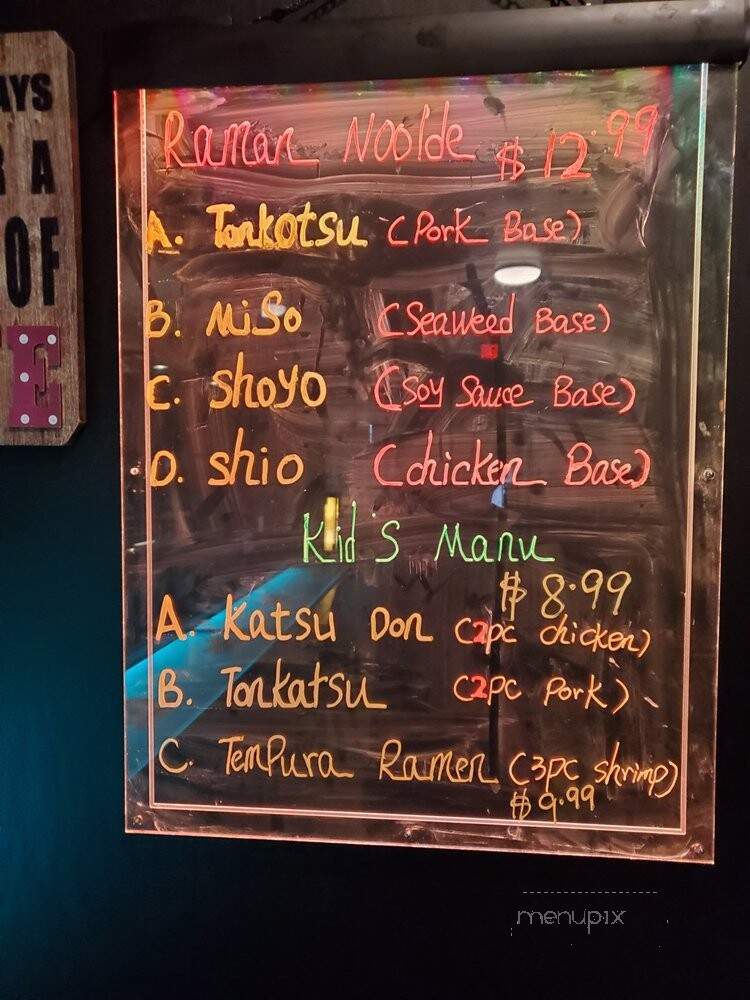 AYS
R A
OF
E
Raman Noolde $12.99
A. Tonkotsu (Pork Base)
B. Miso (Seaweed Base)
C. Shoyo (Soy Sauce Base)
D. Shio (Chicken Base)
Kid's Manu
$8.99
A. Katsu Don (2pc chicken)
B. Tonkatsu (2pc Pork)
C. Tempura Ramen (3pc shrimp)
$9.99
menupix